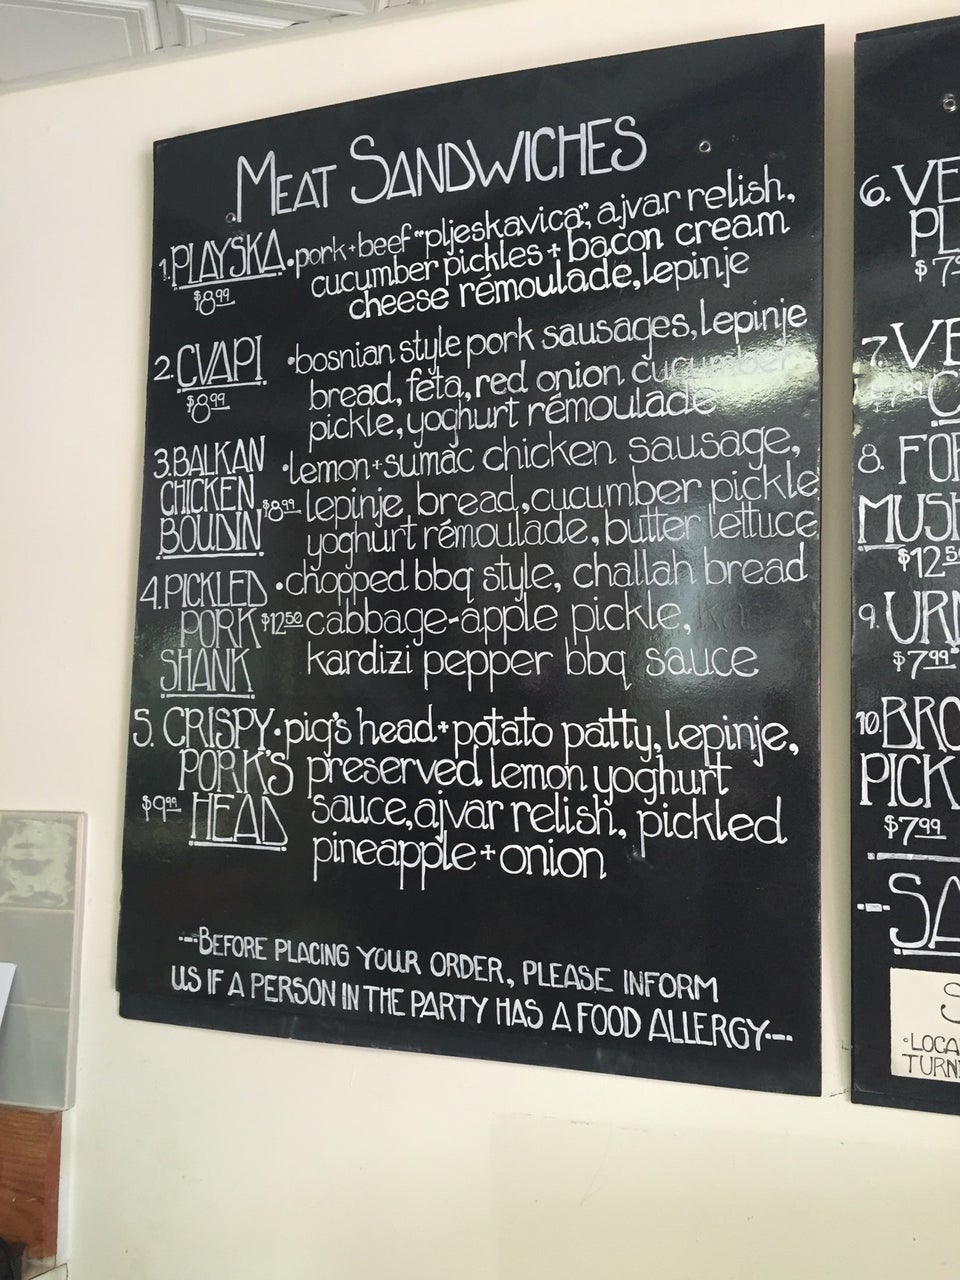 MEAT SANDWICHES
1. PLAYSKA • pork + beef "pljeskavica", ajvar relish,
$8.99 cucumber pickles + bacon cream
cheese rémoulade, lepinje
2. CVAPI • bosnian style pork sausages, lepinje
$8.99 bread, feta, red onion cucumber
pickle, yoghurt rémoulade
3. BALKAN • lemon + sumac chicken sausage,
CHICKEN $8.99 lepinje bread, cucumber pickle
BOUDIN yoghurt rémoulade, butter lettuce
4. PICKLED • chopped bbq style, challah bread
PORK $12.50 cabbage-apple pickle,
SHANK kardizi pepper bbq sauce
5. CRISPY • pig's head + potato patty, lepinje,
PORK'S preserved lemon yoghurt
$9.99 HEAD sauce, ajvar relish, pickled
pineapple + onion
---BEFORE PLACING YOUR ORDER, PLEASE INFORM
US IF A PERSON IN THE PARTY HAS A FOOD ALLERGY---
6. VE
PL
$7.9
7. VE
$7.99 C
8. FO
MUS
$12.50
9. UR
$7.99
10. BRO
PICK
$7.99
--- SA
S
• LOCA
TURN